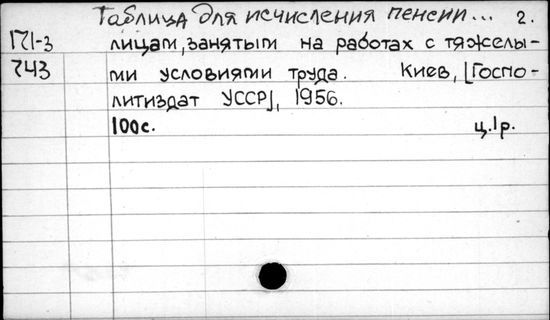 Таблица для исчисления пенсии... 2.
П1-3 лицам, занятым на работах с тяжелы-
743 ми условиями труда. Киев, [Госпо-
литиздат УССР], 1956.
100с. ц.1р.